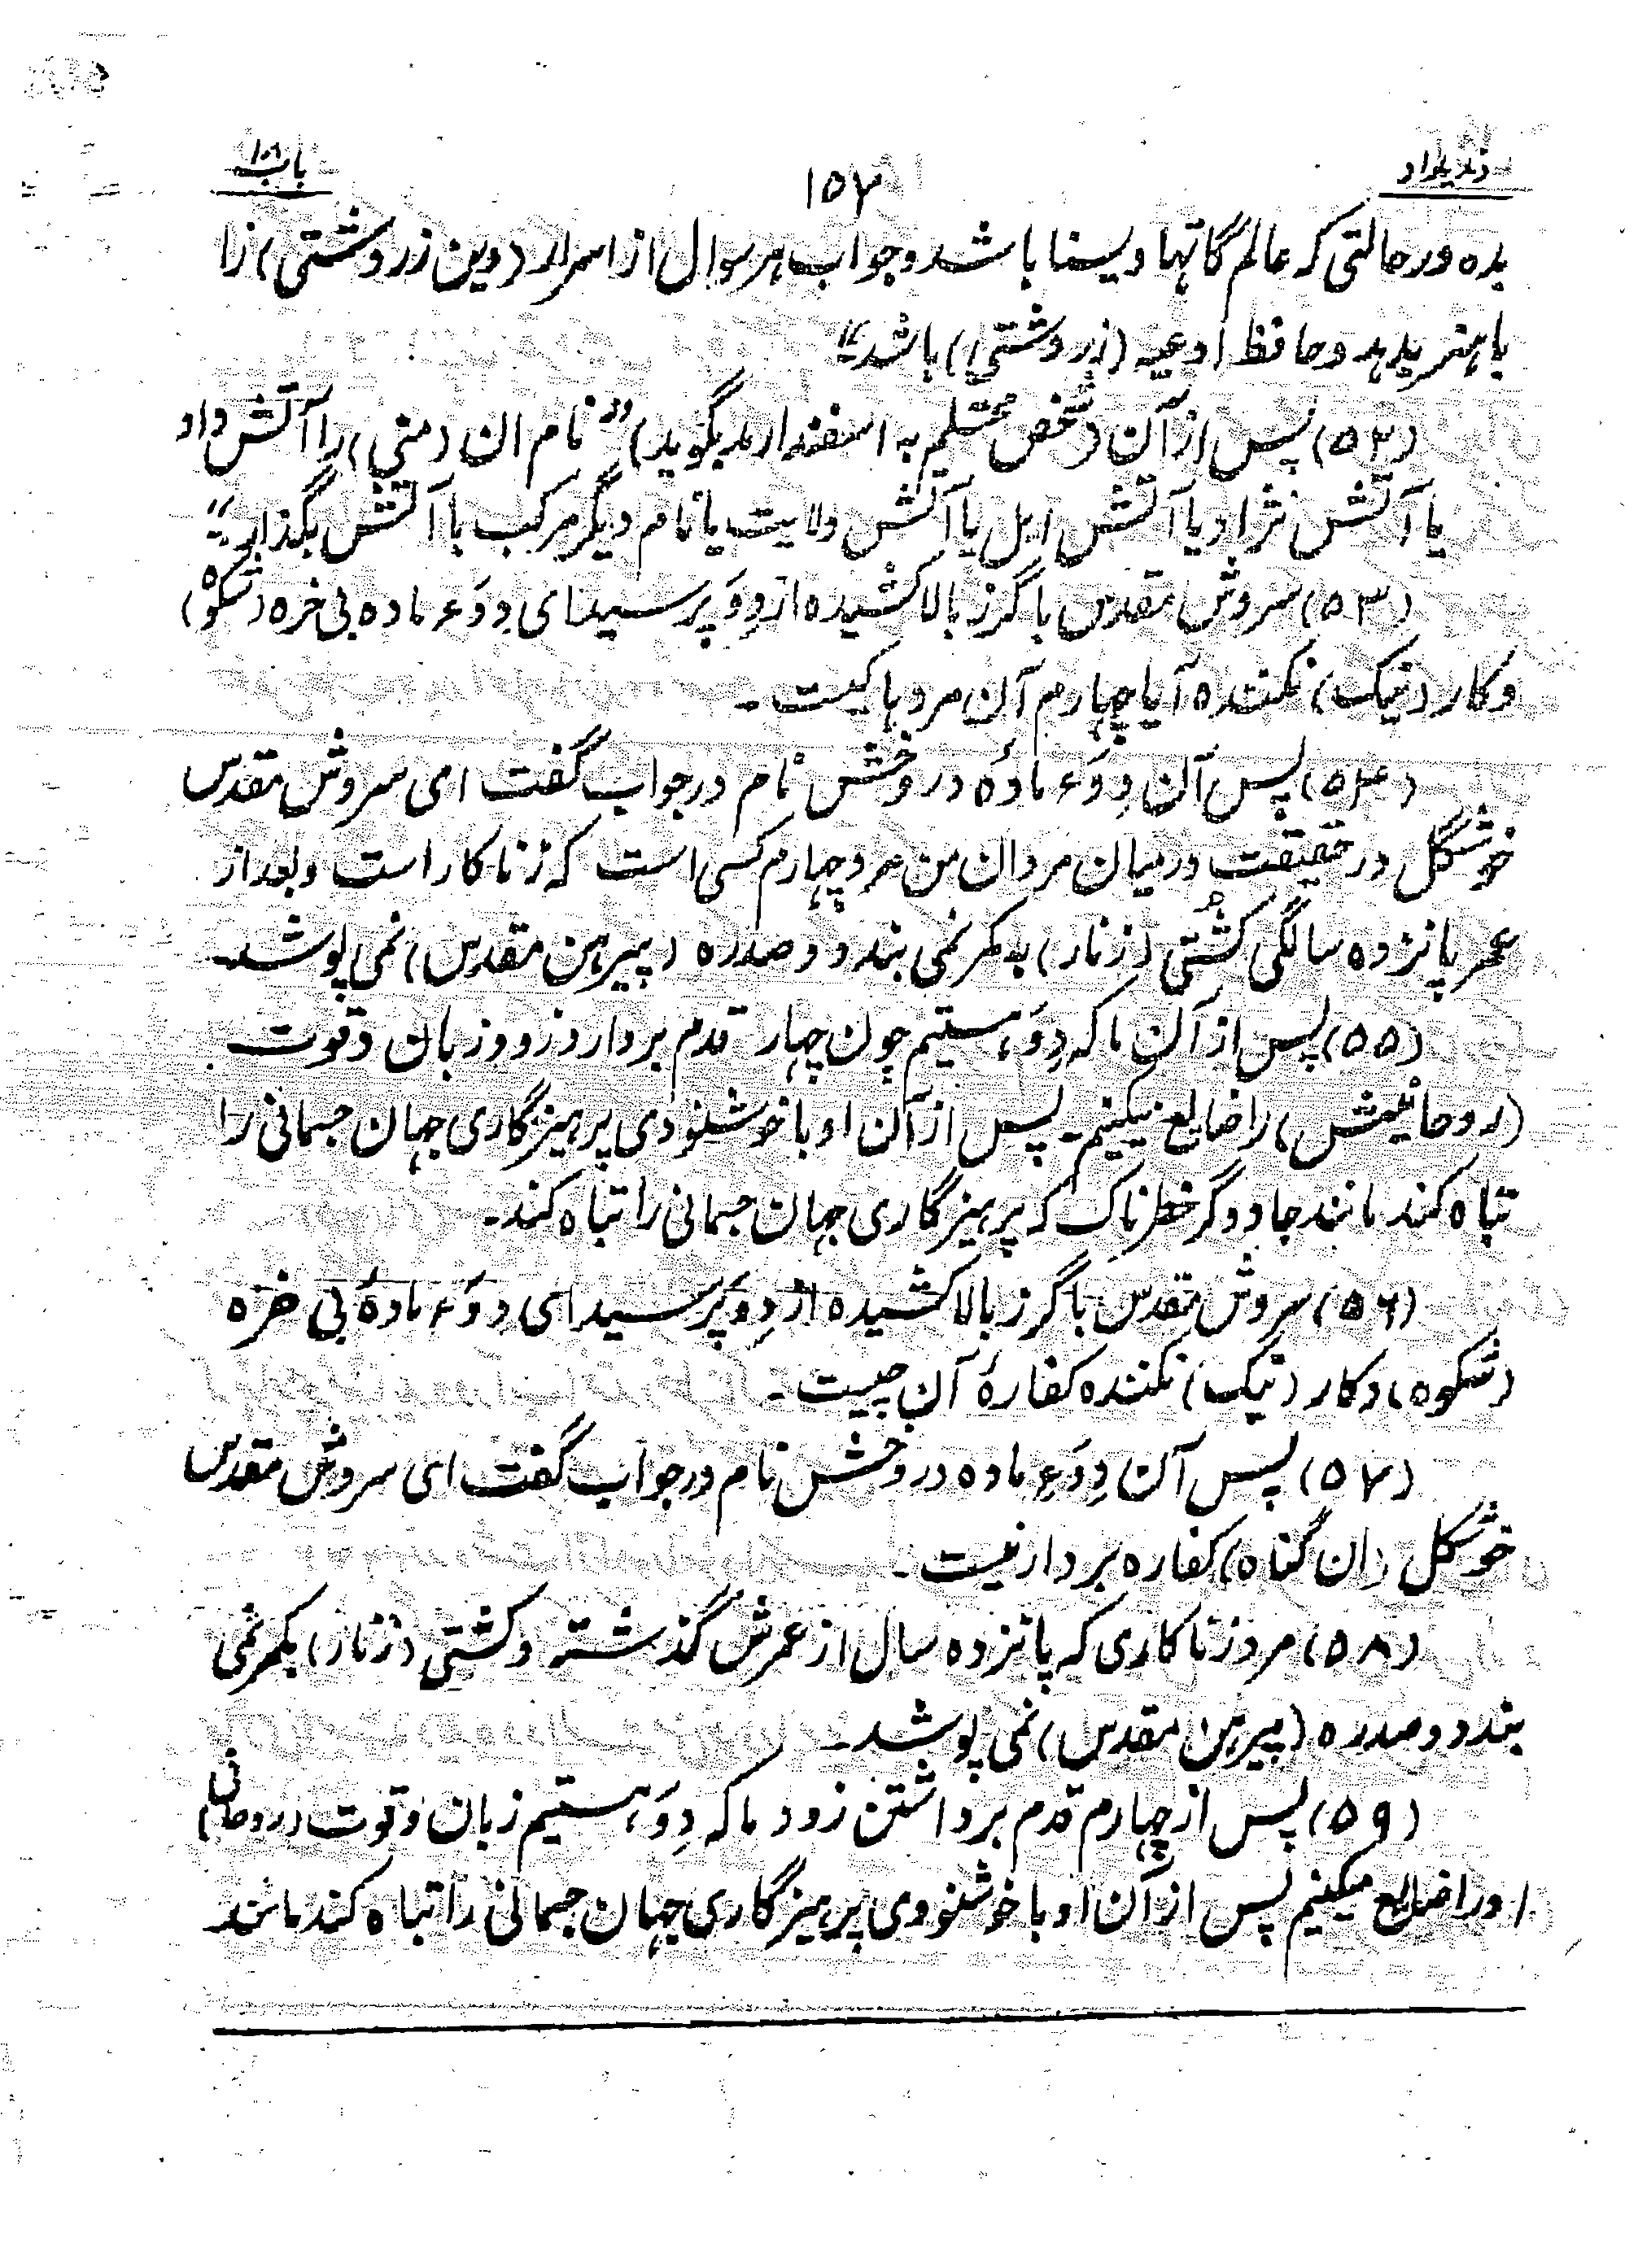 وندیداد
۱۵۷
باب ۱۸
بده در حالتی که عالم گاتها و یسنا باشد و جواب هر سوال از اسرار (دین زردشتی) را
با هنر بدهد و حافظ ادعیه (زردشتی) باشد"
(۵۲) پس از آن (شخص متظلم به اسفندارمد بگوید) "نام ان (منی) را آتش داد
یا آتش نژاد یا آتش ایل یا آتش ولایت یا نام دیگر مرکب با آتش بگذار"
(۵۳) سروش مقدس با گرز بالا کشیده از دِوَ پرسید ای دِوَءِ ماده بی خره (شکوه)
و کار (نیک) نکننده آیا چهارم آن مردها کیست ـ
(۵۴) پس آن دِوَءِ مادۀ دروخش نام در جواب گفت ای سروش مقدس
خوشگل در حقیقت در میان مردان من مرد چهارم کسی است که زناکار است و بعد از
عمر پانزده سالگی کُشتی (زنار) به کمر نمی بندد و صدره (پیرهن مقدس) نمی پوشد
(۵۵) پس از آن ما که دِوَ هستیم چون چهار قدم بردارد زود زبان و قوت
(روحانیتش) را ضایع میکنیم ـ پس از آن او با خوشنودی پرهیزگاری جهان جسمانی را
تباه کند مانند جادوگر خطرناک که پرهیزگاری جهان جسمانی را تباه کند ـ
(۵۶) سروش مقدس با گرز بالا کشیده از دِوَ پرسید ای دِوَءِ مادۀ بی خره
(شکوه) و کار (نیک) نکننده کفارۀ آن چیست ـ
(۵۷) پس آن دِوَءِ ماده دروخش نام در جواب گفت ای سروش مقدس
خوشگل (ان گناه) کفاره بردار نیست ـ
(۵۸) مرد زناکاری که پانزده سال از عمرش گذشته و کشتی (زنار) بکمر نمی
بندد و صدره (پیرهن مقدس) نمی پوشد ـ
(۵۹) پس از چهارم قدم برداشتن زود ما که دِوَ هستیم زبان و قوت (روحانی)
او را ضایع میکنیم پس از آن او با خوشنودی پرهیزگاری جهان جسمانی را تباه کند مانند